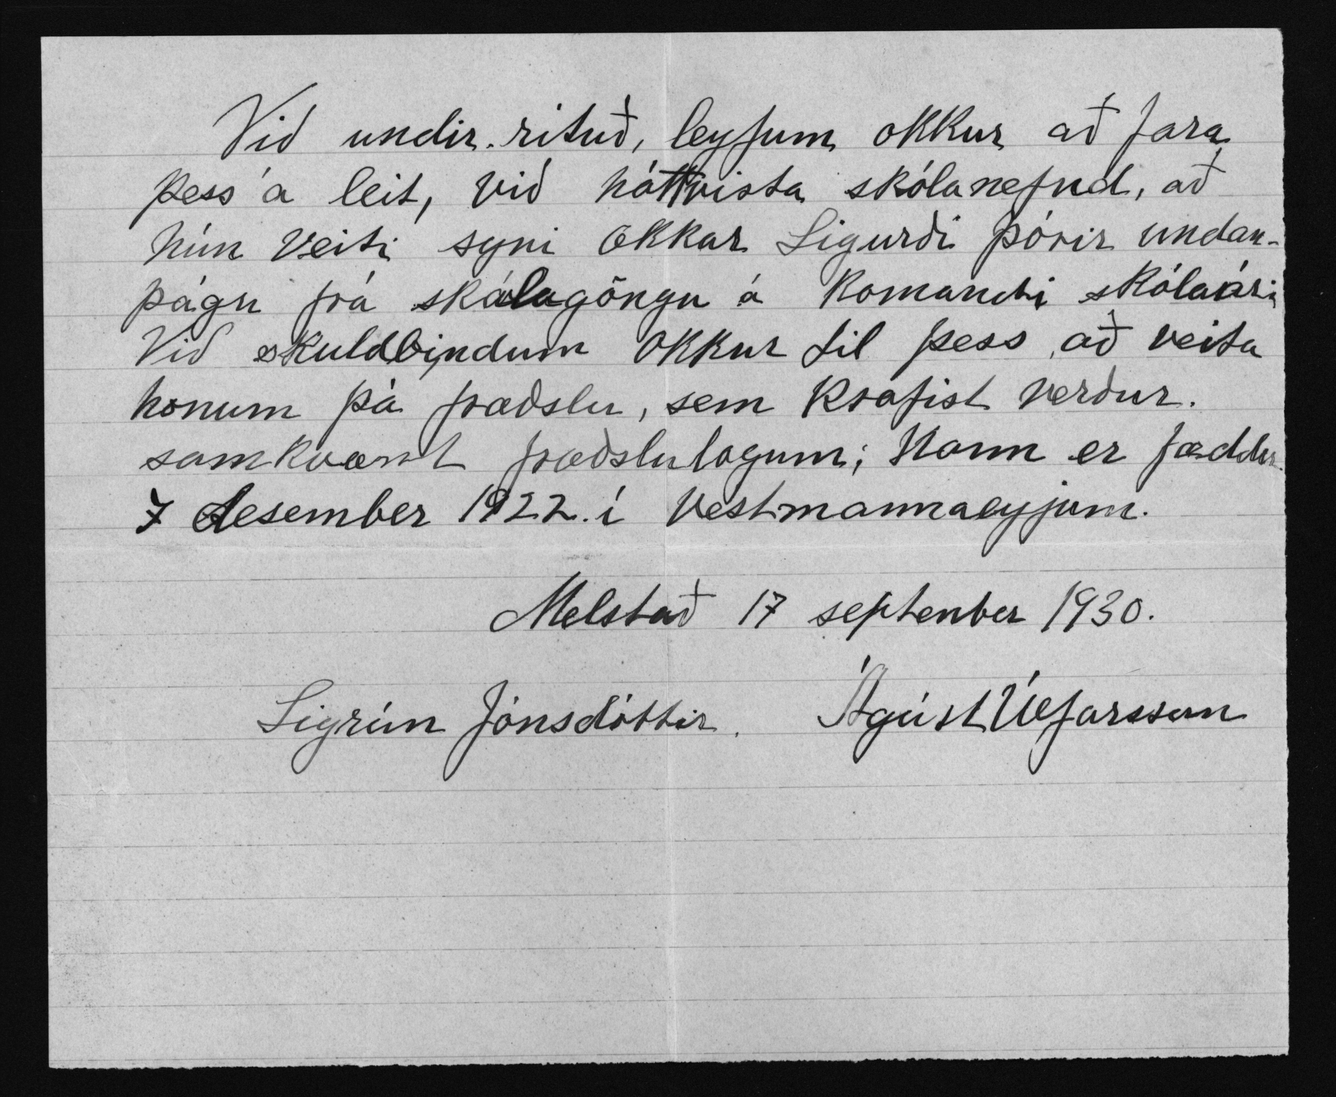 Við undir.rituð, leyfum okkur að fara
þess á leit, við háttvista skólanefnd, að
hún veiti syni okkar Sigurði Þórir undan-
þágu frá skólagöngu á komandi skólaári
Við skuldbindum okkur til þess að veita
honum þá fræðslu, sem krafist verður.
samkvæmt fræðslulögum; Hann er fæddur
7 desember 1922. í Vestmannaeyjum.
Melstað 17 septenber 1930.
Sigrún Jónsdóttir. Ágúst Úlfarsson